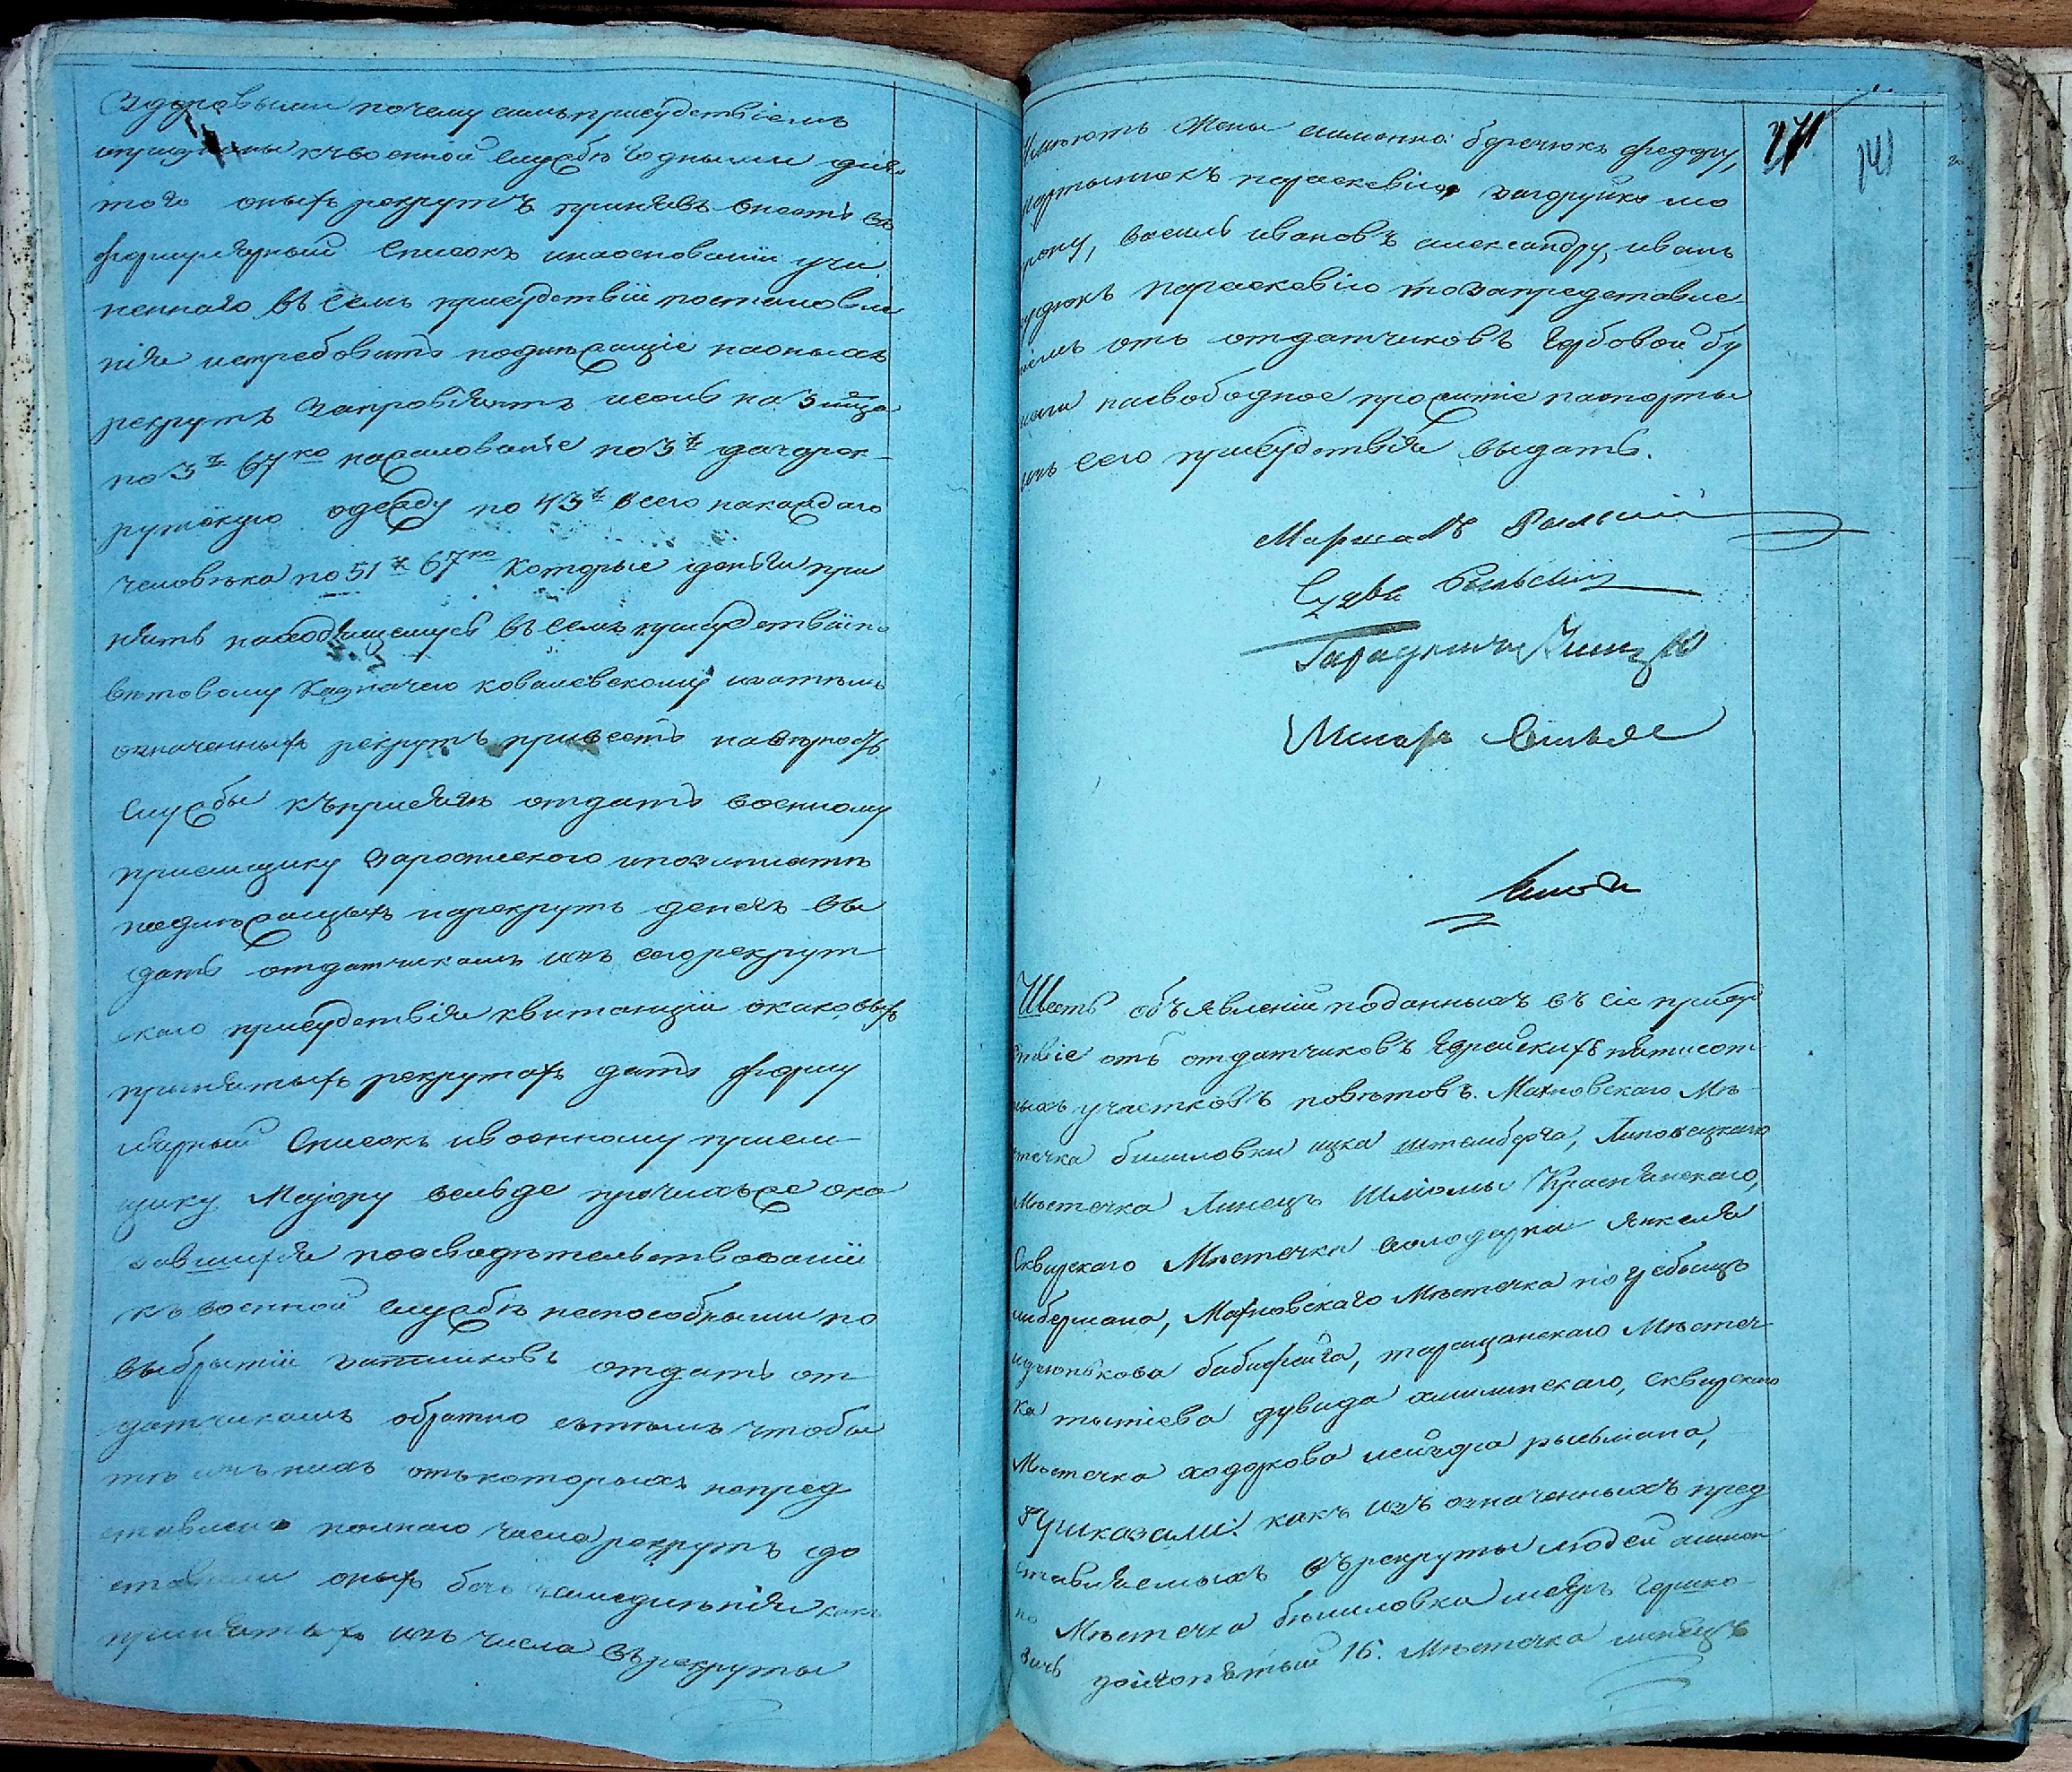 здоровыми почему симъ присудствіемъ
и признаны къ военной службѣ годными для
того оныхъ рекрутъ принявъ внесть въ
формулярный списокъ и на основаніи учи
неннаго въ семъ присудствіи постановле
нія истребовать подлежащіе на оныхъ
рекрутъ за провіянтъ и соль на 3 мѣца
по 3 67ко на жалованіе по 3 за рек
рутскую одежду по 43 всего на каждаго
человѣка по 51 67ко которые деньги при
нять находящемуся въ семъ присудствіи по
вѣтовому казначею ковалевскому и затѣмъ
означенныхъ рекрутъ привесть на вѣрность
службы къ присягѣ отдать военному
пріемщику за роспискою и по взиманіи
подлежащыхъ на рекрутъ денегъ вы
дать отдатчикамъ изъ сего рекрут
скаго присудствія квитанціи о каковыхъ
принятыхъ рекрутахъ дать форму
лярный списокъ и военному пріем
щику маіору вельде прочихъ же ока
завшихся по освидѣтельствованіи
къ военной службѣ неспособными по
выбрытіи затылковъ отдать от
датчикамъ обратно съ тѣмъ чтобы
тѣ изъ нихъ отъ которыхъ непред
ставлено полнаго числа рекрутъ до
ставили оныхъ безъ замедленія какъ
принятыхъ изъ числа въ рекруты
271 141
имѣютъ жены а именно: федору,
мартынюкъ параскевію загоруйко мо
трону, василь ивановъ александру, иванъ
параскевію то за представле
ніемъ отъ отдатчиковъ гербовой бу
маги на свободное прожитіе паспорты
изъ сего присудствія выдать.
Маршалъ
Судья
Шесть объявленій поданныхъ въ сіе присуд
ствіе отъ отдатчиковъ Еврейскихъ пятисот
ныхъ участковъ повѣтовъ. Махновскаго Мѣ
стечка билиловки ицка штемберга, Липовецкаго
Мѣстечка Линецъ Шліомы Краснянскаго,
Сквирскаго Мѣстечка володарки янкеля
либермана, Махновскаго Мѣстечка погребыщъ
таращанскаго Мѣстеч
ка тытіева дувида хмилинскаго, Сквирскаго
Мѣстечка ходоркова лейзора рыльмана,
Приказали: какъ изъ означенныхъ пред
ставляемыхъ въ рекруты людей а имен
но Мѣстечка билиловки меяръ Гершко
вичъ 16. Мѣстечка линецъ